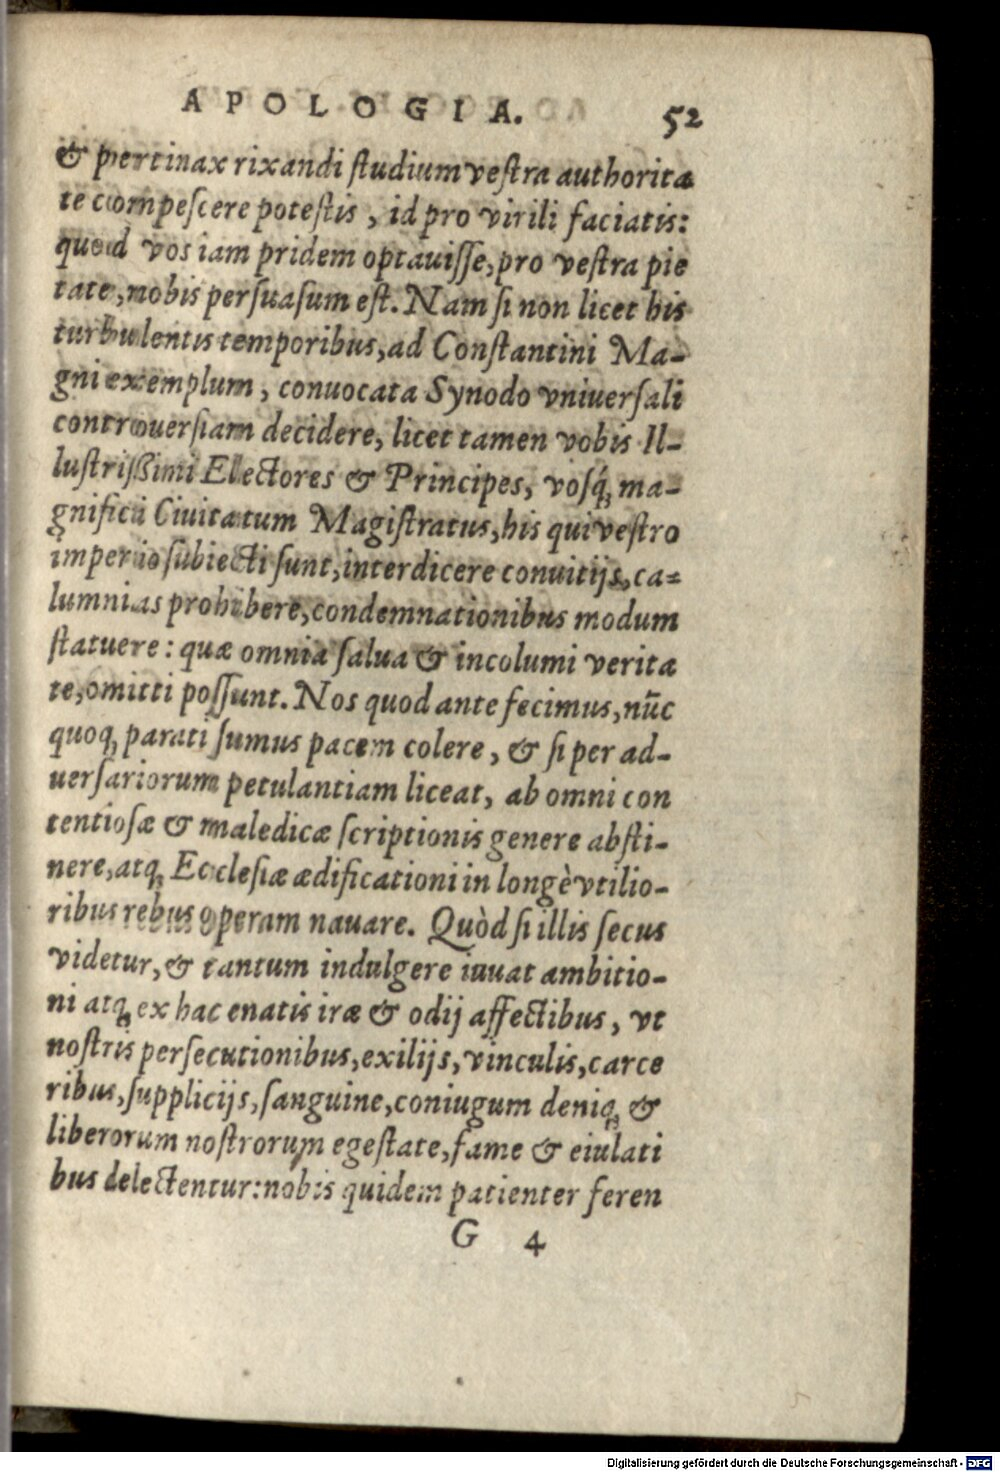 APOLOGIA. 52
& pertinax rixandi ſtudium veſtra authorita
te compeſcere poteſtis, id pro virili faciatis:
quod vos iam pridem optauiſſe, pro veſtra pie
tate, nobis perſuaſum eſt. Nam ſi non licet his
turbulentis temporibus, ad Conſtantini Ma-
gni exemplum, conuocata Synodo vniuerſali
controuerſiam decidere, licet tamen vobis Il-
luſtriſsimi Electores & Principes, voſq́; ma-
gnifici Ciuitatum Magiſtratus, his qui veſtro
imperio ſubiecti ſunt, interdicere conuitijs, ca-
lumnias prohibere, condemnationibus modum
ſtatuere: quæ omnia ſalua & incolumi verita
te, omitti poſſunt. Nos quod ante fecimus, nūc
quoq; parati ſumus pacem colere, & ſi per ad-
uerſariorum petulantiam liceat, ab omni con
tentioſæ & maledicæ ſcriptionis genere abſti-
nere, atq; Eccleſiæ ædificationi in longè vtilio-
ribus rebus operam nauare. Quòd ſi illis ſecus
videtur, & tantum indulgere iuuat ambitio-
ni atq; ex hac enatis iræ & odij affectibus, vt
noſtris perſecutionibus, exilijs, vinculis, carce
ribus, ſupplicijs, ſanguine, coniugum deniq; &
liberorum noſtrorum egeſtate, fame & eiulati
bus delectentur: nobis quidem patienter feren
G 4
Digitalisierung gefördert durch die Deutsche Forschungsgemeinschaft - DFG